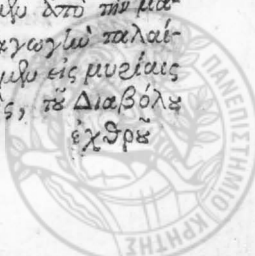 ἀπὸ τὴν μα-
αγωγὴν παλαί-
εἰς μυρίαις
ς, τοῦ Διαβόλου
ἐχθροῦ
ΠΑΝΕΠΙΣΤΗΜΙΟ ΚΡΗΤΗΣ